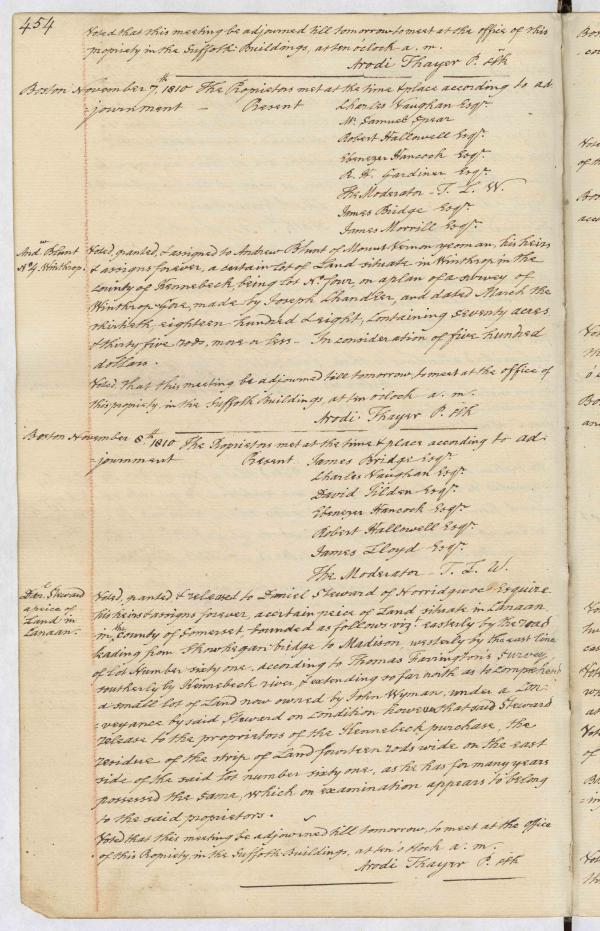 454
Voted that this meeting be adjourned till tomorrow to meet at the office of this
propriety in the Suffolk Buildings, at ten oclock a. m.
Arodi Thayer P. Clk
Boston November 7th 1810 The Propietors met at the time & place according to ad-
=journment — Present Charles Vaughan Esqr.
Mr. Samuel Spear
Robert Hallowell Esqr.
Ebenezer Hancock Esqr.
R. H. Gardiner Esqr.
The Moderator - T. L. W.
James Bridge Esqr.
James Morrill Esqr.
Andw Blunt
No. 4 Winthrop.
Voted, granted, & assigned to Andrew Blunt of Mount Vernon yeoman, his heirs
& assigns forever, a certain lot of Land situate in Winthrop in the
County of Kennebeck, being lot No. four, on a plan of a survey of
Winthrop Gore, made by Joseph Chandler, and dated March the
thirtieth, eighteen hundred & eight, Containing seventy acres
& thirty five rods, more or less - In consideration of five hundred
dollars.
Voted, That this meeting be adjourned till tomorrow to meet at the office of
this propriety, in the Suffolk Buildings, at ten o'clock a. m.
Arodi Thayer P. Clk
Boston November 8th 1810 The Propietors met at the time & place according to ad-
=journment Present James Bridge Esqr.
Charles Vaughan Esqr.
David Tilden Esqr.
Ebenezer Hancock Esqr.
Robert Hallowell Esqr.
James Lloyd Esqr.
The Moderator - T. L. W.
Danl. Steward
a peice of
Land in
Canaan.
Voted, granted & released to Daniel Steward of Norridgwock Esquire
his heirs & assigns forever, a certain peice of Land situate in Canaan
in the County of Somerset, bounded as follows viz. easterly by the road
leading from Skowhegan bridge to Madison, westerly by the east line
of Lot Number sixty one, according to Thomas Farington's Survey,
southerly by Kennebeck river, & extending so far north as to comprehend
a small lot of Land now owned by John Wyman, under a Con-
=veyance by said Steward on Condition however that said Steward
release to the proprietors of the Kennebeck purchase, the
residue of the strip of Land fourteen rods wide on the east
side of the said lot number sixty one, as he has for many years
possessed the same, which on examination appears to belong
to the said proprietors.
Voted that this meeting be adjourned till tomorrow, to meet at the office
of this Propiety, in the Suffolk Buildings, at ten o'clock a. m.
Arodi Thayer P. Clk